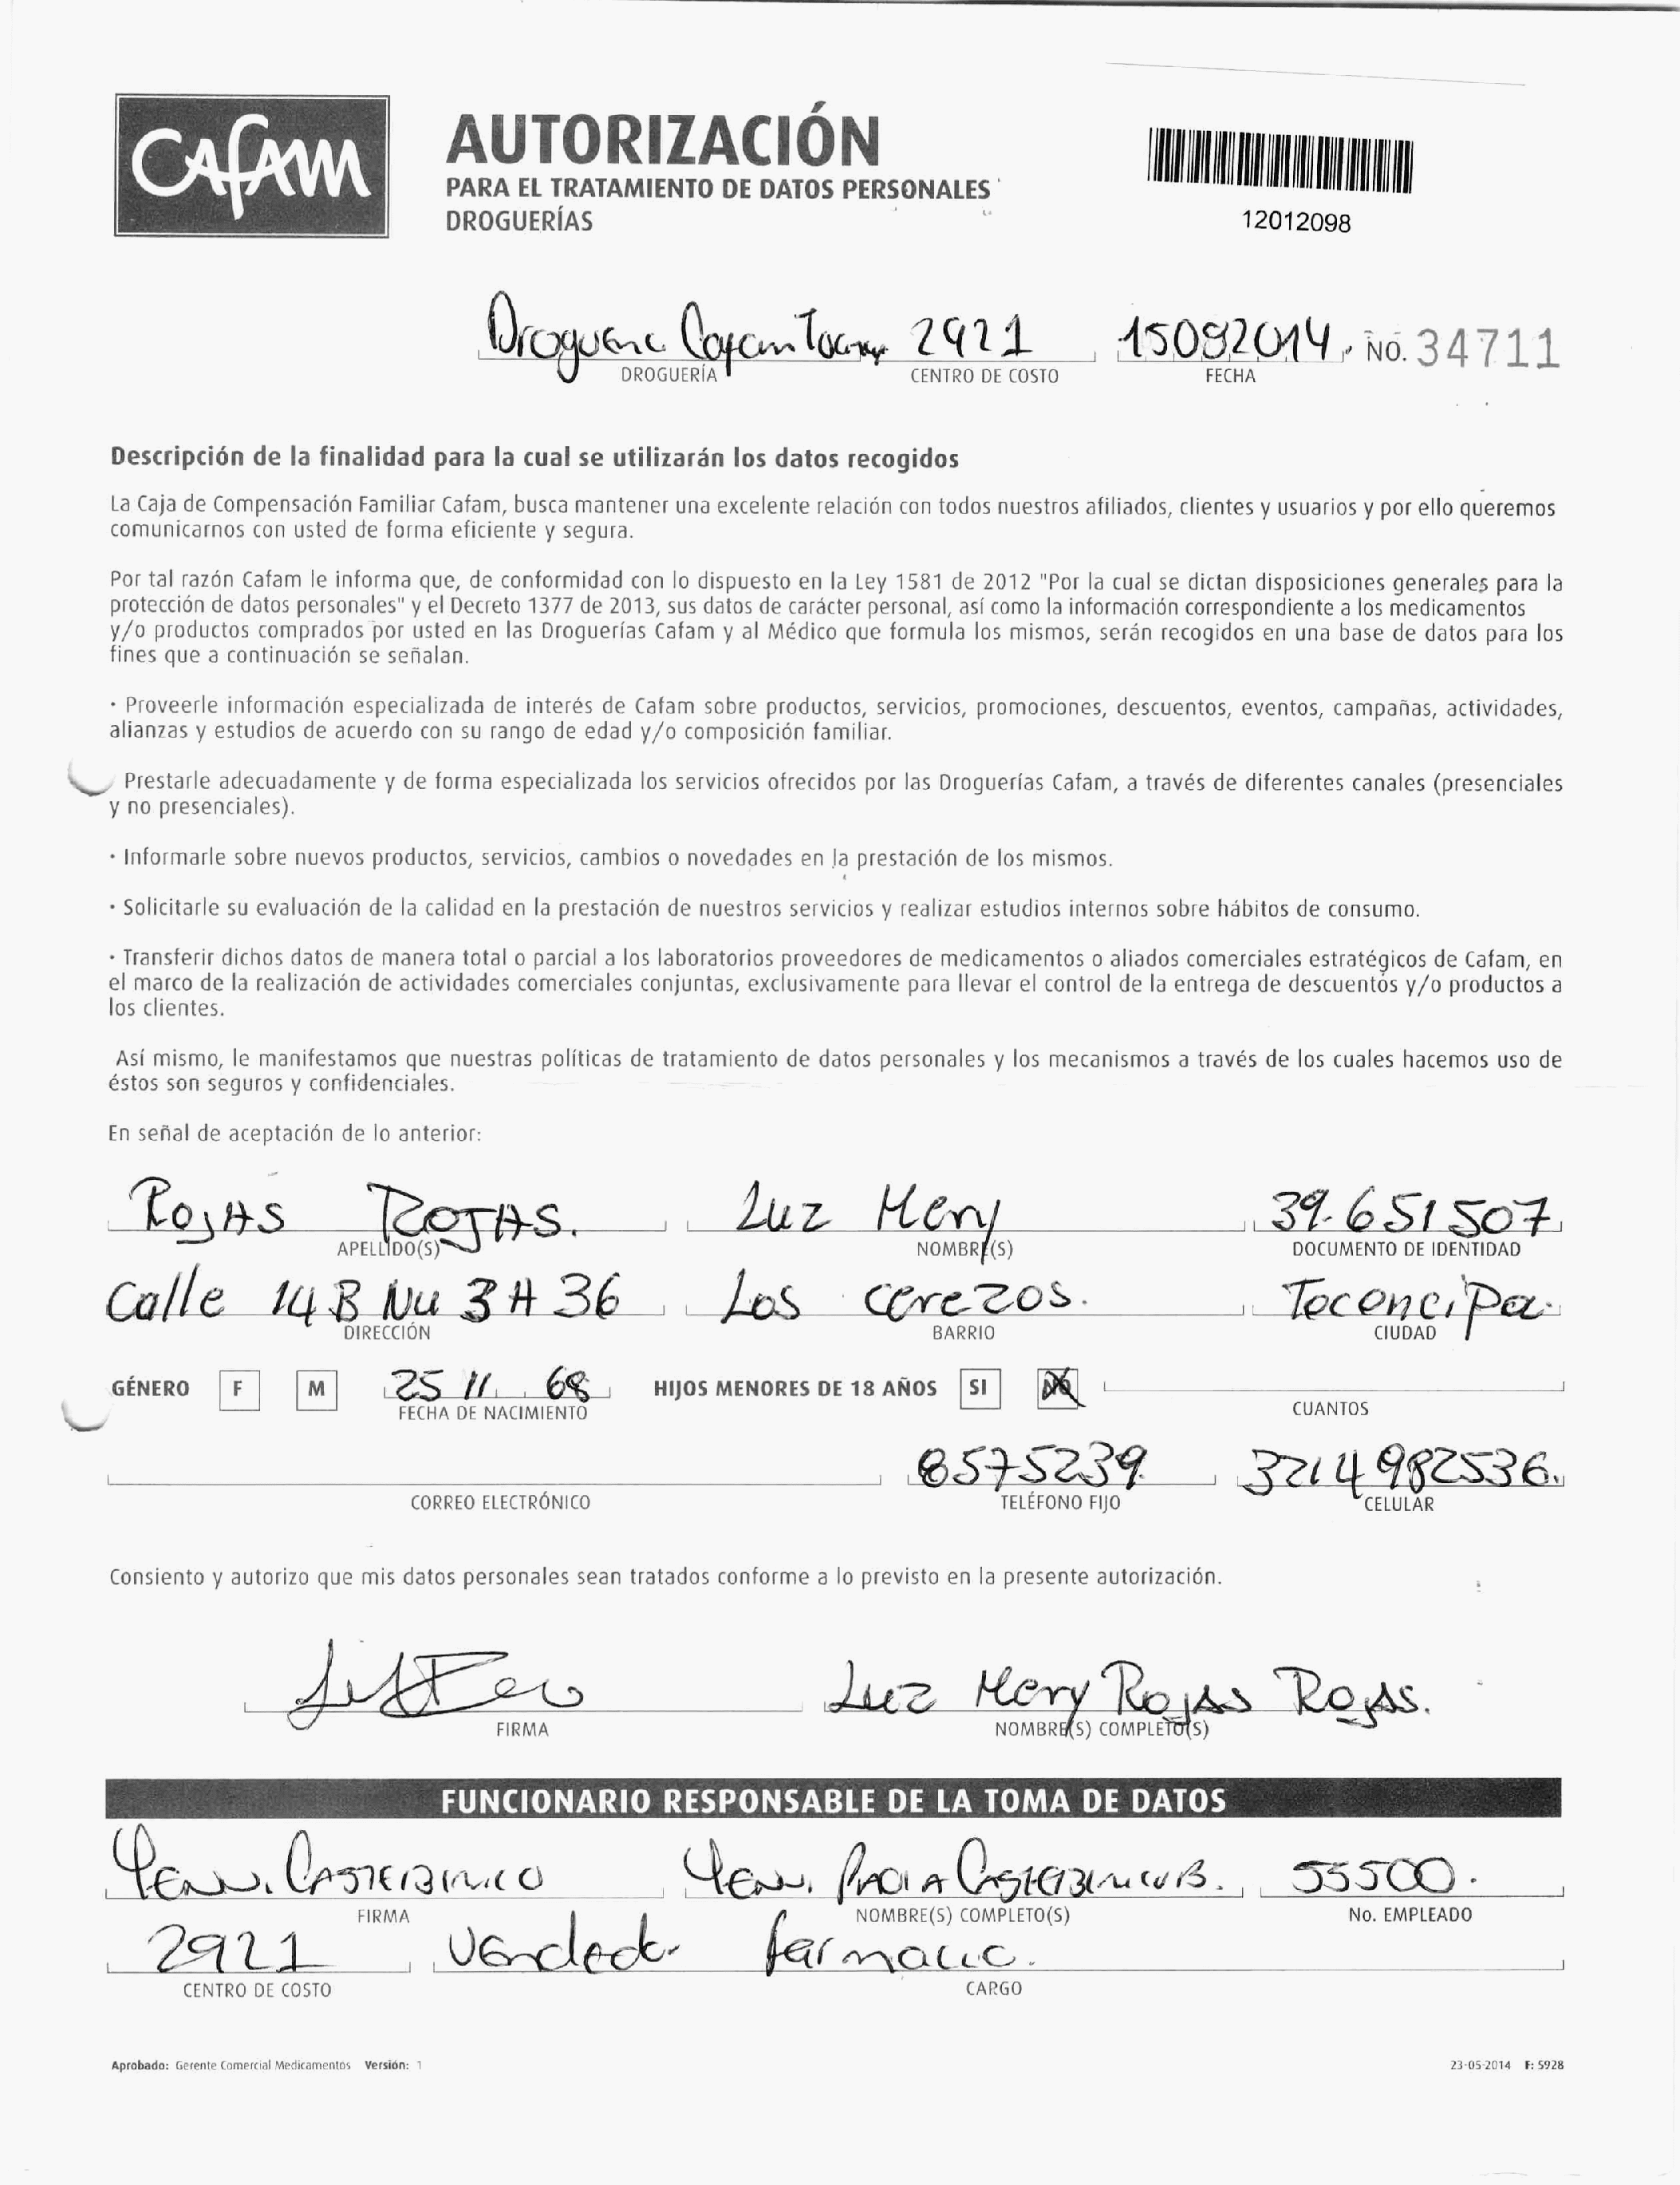 CAFAM
AUTORIZACIÓN
PARA EL TRATAMIENTO DE DATOS PERSONALES
DROGUERÍAS
12012098
Cafam 2921 15092014 NO. 34711
DROGUERÍA CENTRO DE COSTO FECHA
Descripción de la finalidad para la cual se utilizarán los datos recogidos
La Caja de Compensación Familiar Cafam, busca mantener una excelente relación con todos nuestros afiliados, clientes y usuarios y por ello queremos
comunicarnos con usted de forma eficiente y segura.
Por tal razón Cafam le informa que, de conformidad con lo dispuesto en la Ley 1581 de 2012 "Por la cual se dictan disposiciones generales para la
protección de datos personales" y el Decreto 1377 de 2013, sus datos de carácter personal, así como la información correspondiente a los medicamentos
y/o productos comprados por usted en las Droguerías Cafam y al Médico que formula los mismos, serán recogidos en una base de datos para los
fines que a continuación se señalan.
· Proveerle información especializada de interés de Cafam sobre productos, servicios, promociones, descuentos, eventos, campañas, actividades,
alianzas y estudios de acuerdo con su rango de edad y/o composición familiar.
Prestarle adecuadamente y de forma especializada los servicios ofrecidos por las Droguerías Cafam, a través de diferentes canales (presenciales
y no presenciales).
· Informarle sobre nuevos productos, servicios, cambios o novedades en la prestación de los mismos.
· Solicitarle su evaluación de la calidad en la prestación de nuestros servicios y realizar estudios internos sobre hábitos de consumo.
· Transferir dichos datos de manera total o parcial a los laboratorios proveedores de medicamentos o aliados comerciales estratégicos de Cafam, en
el marco de la realización de actividades comerciales conjuntas, exclusivamente para llevar el control de la entrega de descuentos y/o productos a
los clientes.
Así mismo, le manifestamos que nuestras políticas de tratamiento de datos personales y los mecanismos a través de los cuales hacemos uso de
éstos son seguros y confidenciales.
En señal de aceptación de lo anterior:
Rojas ROJAS. Luz Mery 39.651507
APELLIDO(S) NOMBRE(S) DOCUMENTO DE IDENTIDAD
Calle 14 B Nu 3 A 36 Los cerezos. Tocancipa.
DIRECCIÓN BARRIO CIUDAD
GÉNERO F M 25 11 68 HIJOS MENORES DE 18 AÑOS SI NO
FECHA DE NACIMIENTO CUANTOS
8575239 3214982536.
CORREO ELECTRÓNICO TELÉFONO FIJO CELULAR
Consiento y autorizo que mis datos personales sean tratados conforme a lo previsto en la presente autorización.
Luz Mery Rojas Rojas.
FIRMA NOMBRE(S) COMPLETO(S)
FUNCIONARIO RESPONSABLE DE LA TOMA DE DATOS
55500.
FIRMA NOMBRE(S) COMPLETO(S) No. EMPLEADO
2921
CENTRO DE COSTO CARGO
Aprobado: Gerente Comercial Medicamentos Versión: 1 23-05-2014 F: 5928